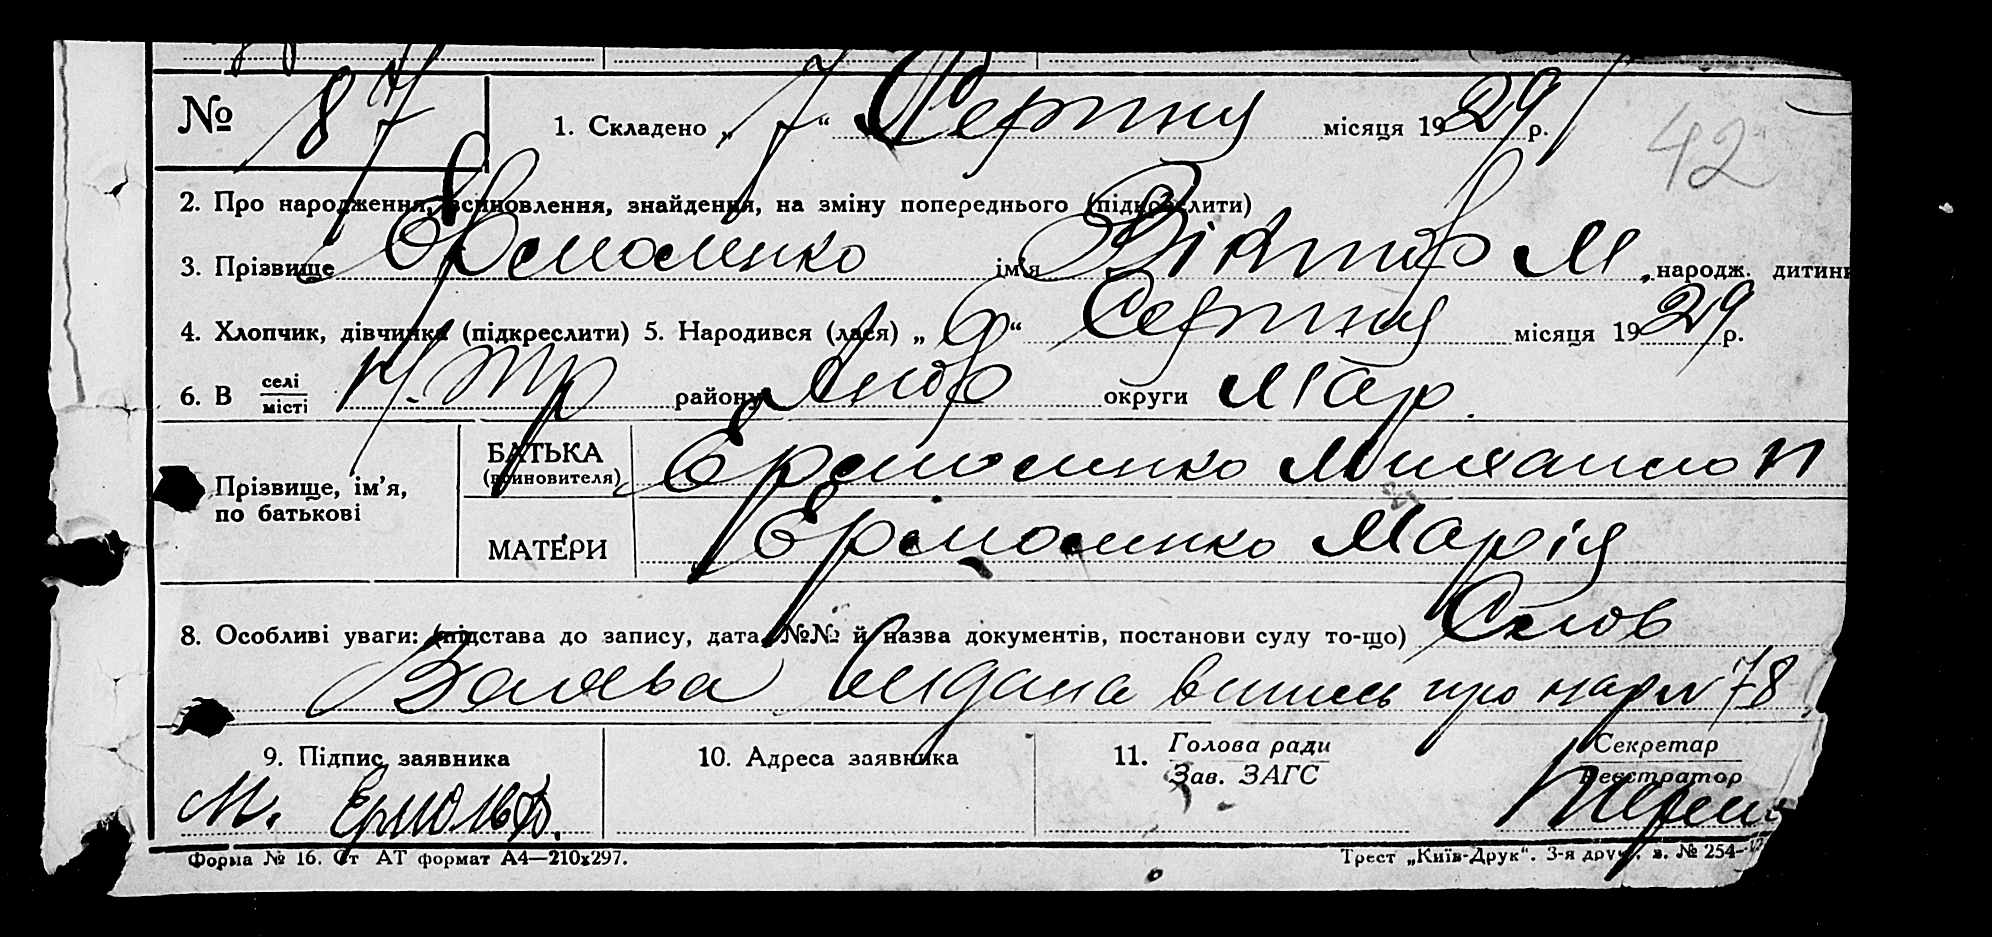 № 87 1. Складено „ 7 “ Серпня місяця 1929 р.
42
2. Про народження, всиновлення, знайдення, на зміну попереднього (підкреслити)
3. Прізвище Єрмоленко ім'я Віктор М. народж. дитини
4. Хлопчик, дівчинка (підкреслити) 5. Народився (лася) „ 6 “ Серпня місяця 1929 р.
6. В селі/місті району округи Мар.
Прізвище, ім'я, по батькові
БАТЬКА (вчиновителя) Єрмоленко Михайло И
МАТЕРИ Єрмоленко Марія
8. Особливі уваги: (підстава до запису, дата, №№ й назва документів, постанови суду то-що) Слов
Заява Видана випись про нар № 78
9. Підпис заявника 10. Адреса заявника 11. Голова ради/Зав. ЗАГС Секретар/Реєстратор
М.
Форма № 16. Ст АТ формат А4—210х297. Трест „Київ-Друк“. 3-я друк. з. № 254—